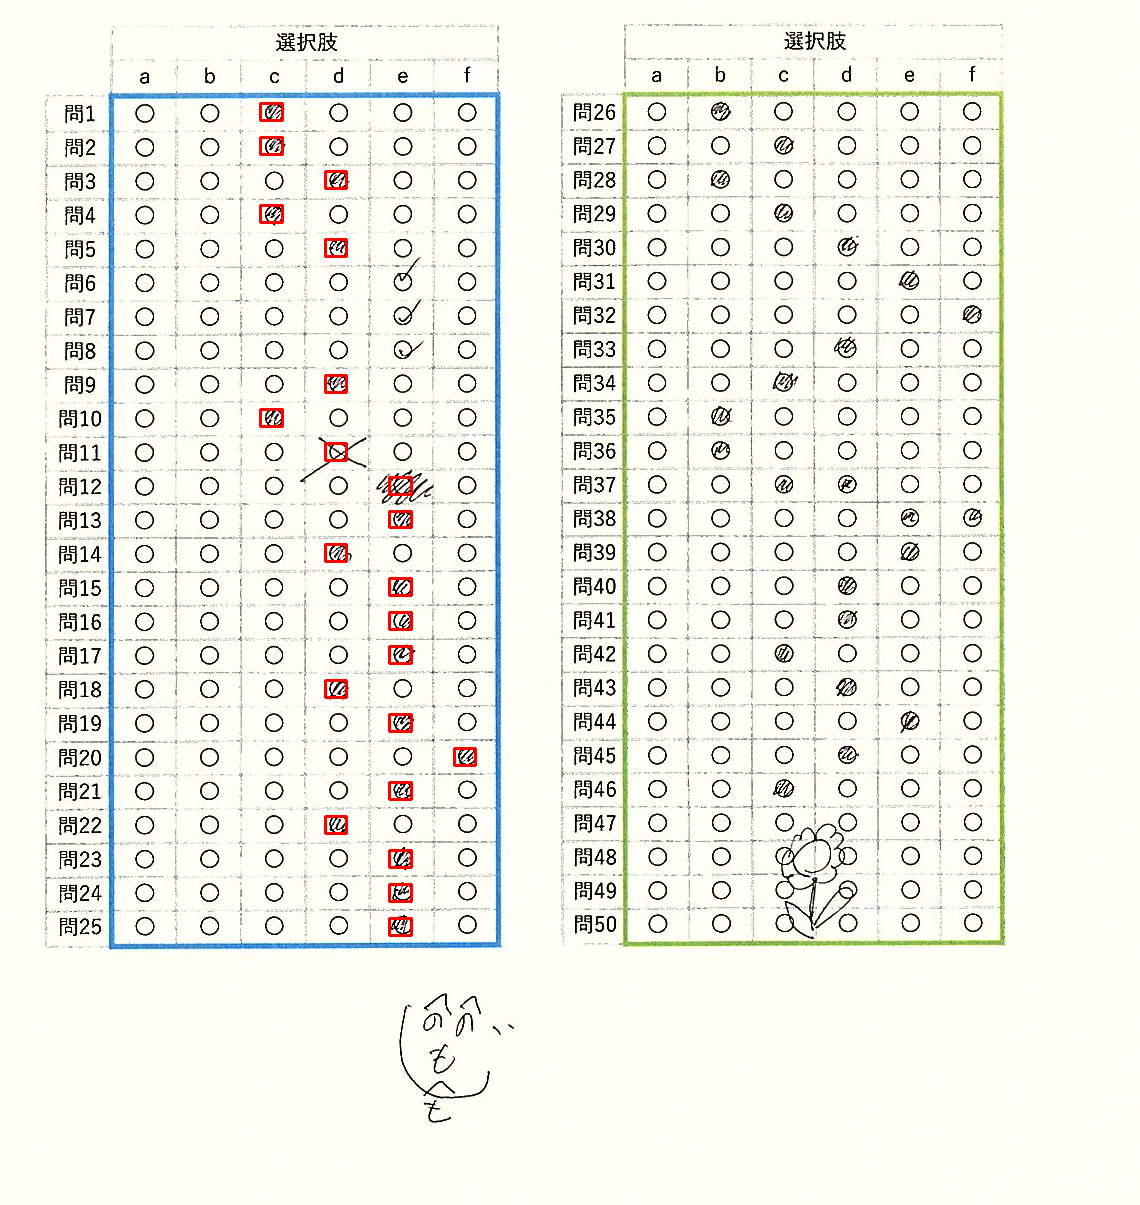 選択肢
a b c d e f
問1
問2
問3
問4
問5
問6
問7
問8
問9
問10
問11
問12
問13
問14
問15
問16
問17
問18
問19
問20
問21
問22
問23
問24
問25
選択肢
a b c d e f
問26
問27
問28
問29
問30
問31
問32
問33
問34
問35
問36
問37
問38
問39
問40
問41
問42
問43
問44
問45
問46
問47
問48
問49
問50
へへ
のの
も
へ
も